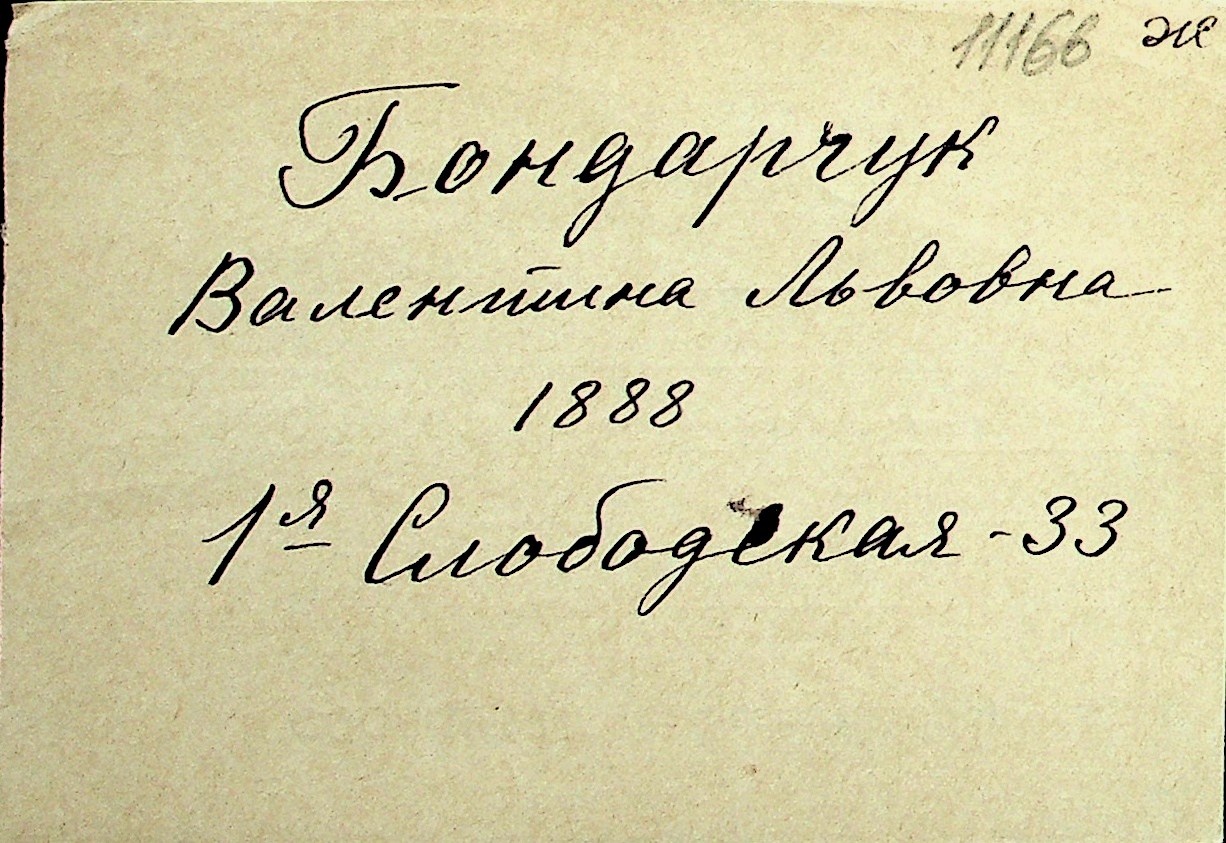 11166 ж
Бондарчук
Валентина Львовна
1888
1я Слободская - 33